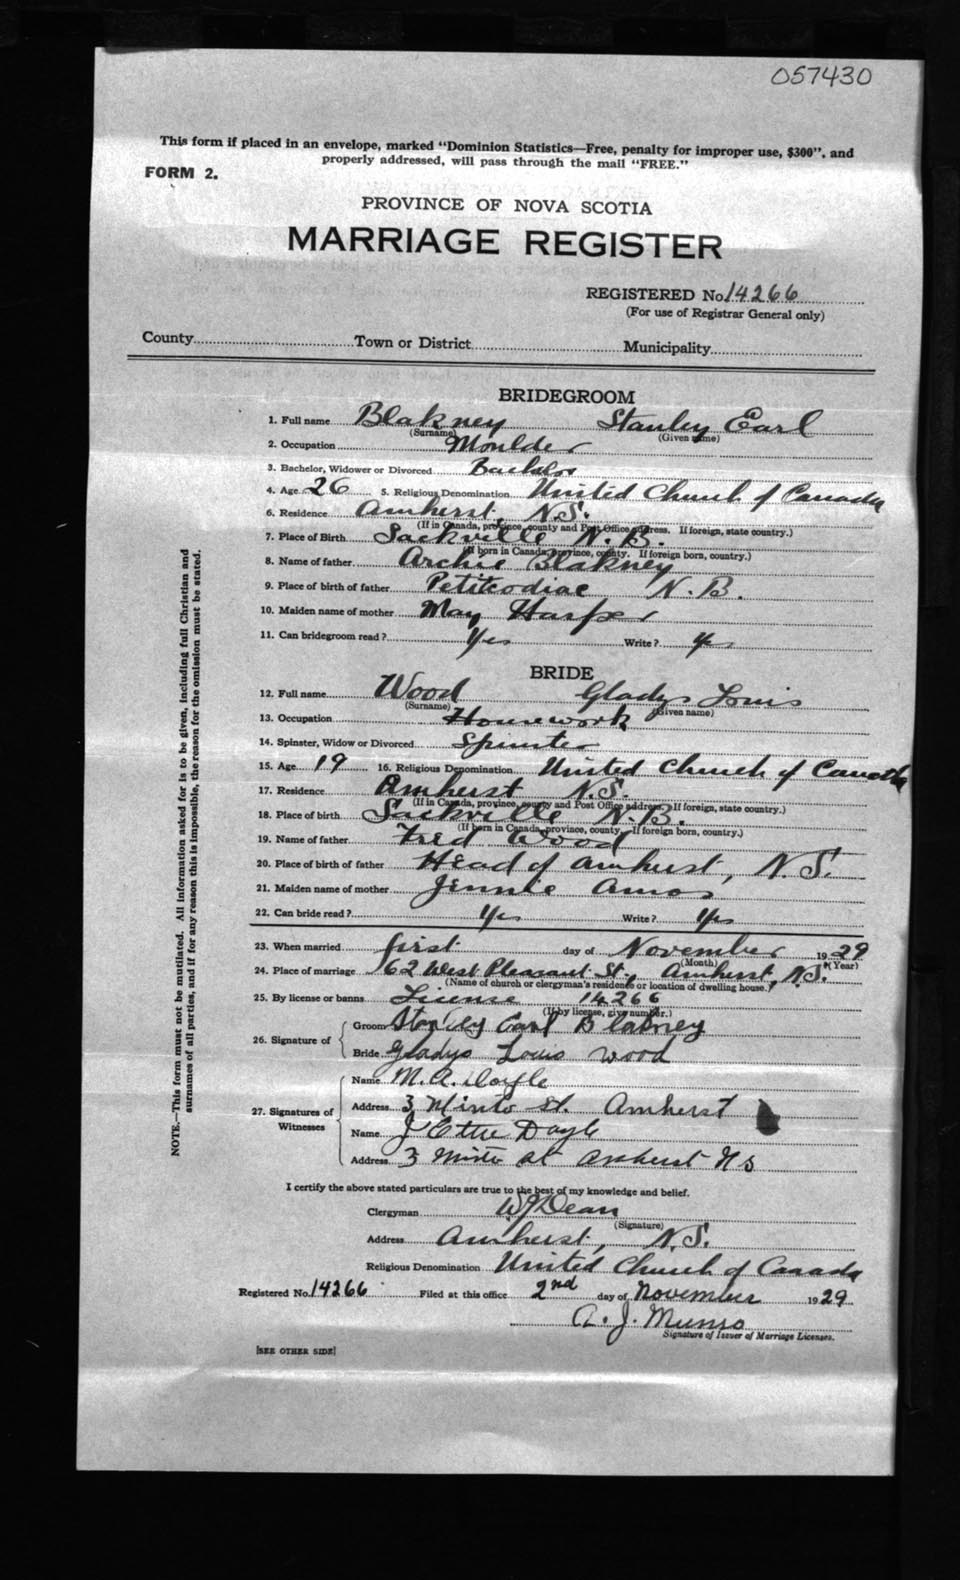 057430
This form if placed in an envelope, marked "Dominion Statistics—Free, penalty for improper use, $300", and
properly addressed, will pass through the mail "FREE."
FORM 2.
PROVINCE OF NOVA SCOTIA
MARRIAGE REGISTER
REGISTERED No. 14266
(For use of Registrar General only)
County Town or District Municipality
BRIDEGROOM
1. Full name Blakney Stanley Earl
(Surname) (Given name)
2. Occupation Moulder
3. Bachelor, Widower or Divorced Bachelor
4. Age 26 5. Religious Denomination United Church of Canada
6. Residence Amherst, N.S.
(If in Canada, province, county and Post Office address. If foreign, state country.)
7. Place of Birth Sackville N.B.
(If born in Canada, province, county. If foreign born, country.)
8. Name of father Archie Blakney
9. Place of birth of father Petitcodiac N.B.
10. Maiden name of mother May Harper
11. Can bridegroom read? Yes Write? Yes
BRIDE
12. Full name Wood Gladys Louis
(Surname) (Given name)
13. Occupation Housework
14. Spinster, Widow or Divorced Spinster
15. Age 19 16. Religious Denomination United Church of Canada
17. Residence Amherst N.S.
(If in Canada, province, county and Post Office address. If foreign, state country.)
18. Place of birth Sackville N.B.
(If born in Canada, province, county. If foreign born, country.)
19. Name of father Fred Wood
20. Place of birth of father Head of Amherst, N.S.
21. Maiden name of mother Jennie Amos
22. Can bride read? Yes Write? Yes
23. When married first day of November 1929
(Month) (Year)
24. Place of marriage 62 West Pleasant St., Amherst, N.S.
(Name of church or clergyman's residence or location of dwelling house.)
25. By license or banns License 14266
(If by license, give number.)
26. Signature of
Groom Stanley Earl Blakney
Bride Gladys Louis Wood
27. Signatures of Witnesses
Name M.A. Doyle
Address 3 Minto St. Amherst
Name J Doyle
Address 3 Minto St Amherst N S
I certify the above stated particulars are true to the best of my knowledge and belief.
Clergyman W J Dean
(Signature)
Address Amherst, N.S.
Religious Denomination United Church of Canada
Registered No. 14266 Filed at this office 2nd day of November 1929
A. J. Munro
Signature of Issuer of Marriage Licenses.
[SEE OTHER SIDE]
NOTE.—This form must not be mutilated. All information asked for is to be given, including full Christian and
surnames of all parties, and if for any reason this is impossible, the reason for the omission must be stated.